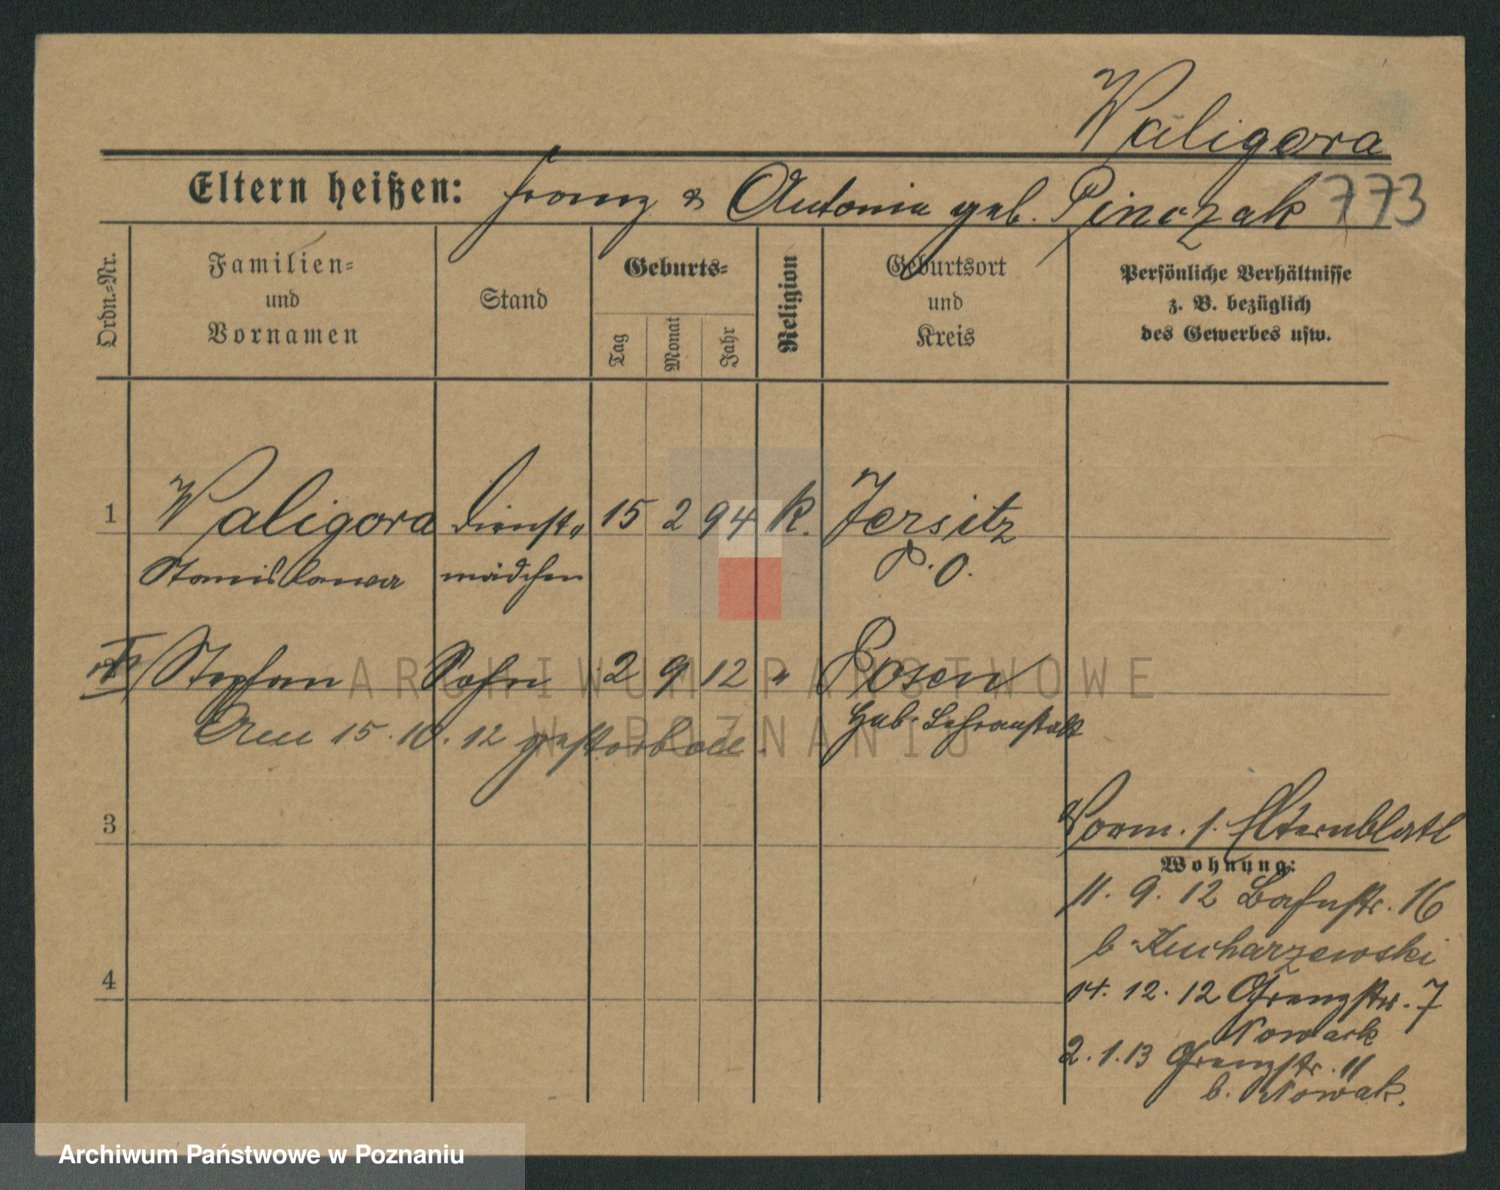 Waligora
Eltern heißen: Franz & Antonie geb. Pinczak 773
Ordn.-Nr.
Familien-
und
Vornamen
Stand
Geburts-
Tag
Monat
Jahr
Religion
Geburtsort
und
Kreis
Persönliche Verhältnisse
z. B. bezüglich
des Gewerbes usw.
1 Waligora Dienst- 15 2 94 k. Jersitz
Stanislawa mädchen P. O.
Stephan Sohn 2 9 12 " Posen
Heb. Lehranstalt
Am 15.10.12 gestorben.
3
Vorm. s. Elternblatt
Wohnung:
11. 9. 12 Bahnstr. 16
b. Kucharzewski
4
14. 12. 12 Grenzstr. 7
Nowack
2. 1. 13 Grenzstr. 11
b. Nowak.
ARCHIWUM PAŃSTWOWE
W POZNANIU
Archiwum Państwowe w Poznaniu